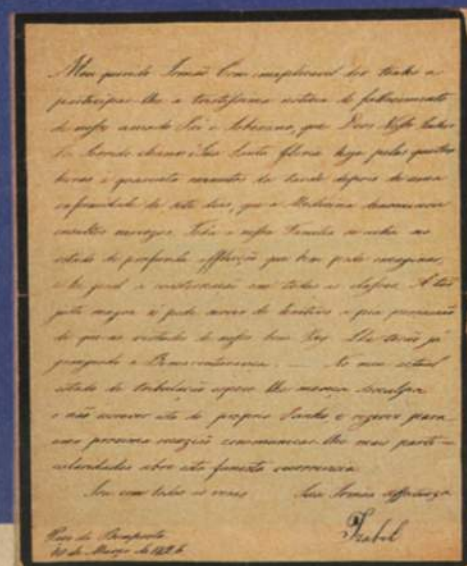 Meu querido Irmão Com inexplicavel dor tenho a
participar lhe a tristissima noticia do fallecimento
de nosso amado Pai e Soberano, que Deos Nosso Senhor
foi Servido chamar á Sua Santa Gloria hoje pelas quatro
horas e quarenta minutos da tarde depois de uma
enfermidade de sete dias, que a Medicina
nervozos. Toda a nossa Familia se acha no
estado de profunda afflicção que bem pode imaginar,
e he geral a consternação em todas as classes. A tão
justa magoa só pode servir de lenitivo a pia persuasão
de que as virtudes de nosso bom Pay lhe terão já
grangeado a Bemaventurança. — No meu actual
estado de tribulação espero lhe mereça desculpa
o não escrever esta de proprio Punho e reservo para
uma proxima occazião communicar lhe mais parti-
cularidades sobre este funesto
Sou com todas as veras Sua Irmãa affeiçoada
Izabel
Paço da Bemposta
10 de Março de 1826